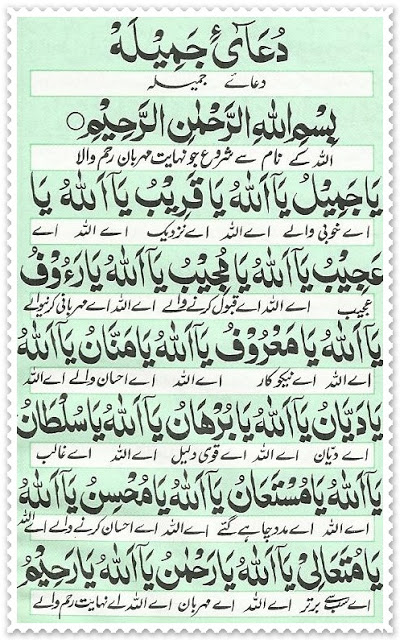 دُعَائے جَمِیْلَہ
دعائے جمیلہ
بِسْمِ اللهِ الرَّحْمٰنِ الرَّحِيْمِ
اللہ کے نام سے شروع جو نہایت مہربان رحم والا
يَا جَمِيْلُ يَآ اَللهُ يَا قَرِيْبُ يَآ اَللهُ يَا
اے خوبی والے اے اللہ اے نزدیک اے اللہ اے
عَجِيْبُ يَآ اَللهُ يَا مُجِيْبُ يَآ اَللهُ يَا رَءُوْفُ
عجیب اے اللہ اے قبول کرنے والے اے اللہ اے مہربانی کرنیوالے
يَآ اَللهُ يَا مَعْرُوْفُ يَآ اَللهُ يَا مَنَّانُ يَآ اَللهُ
اے اللہ اے نیکوکار اے اللہ اے احسان والے اے اللہ
يَا دَيَّانُ يَآ اَللهُ يَا بُرْهَانُ يَآ اَللهُ يَا سُلْطَانُ
اے دیان اے اللہ اے قوی دلیل اے اللہ اے غالب
يَآ اَللهُ يَا مُسْتَعَانُ يَآ اَللهُ يَا مُحْسِنُ يَآ اَللهُ
اے اللہ اے مدد چاہے گئے اے اللہ اے احسان کرنے والے اے اللہ
يَا مُتَعَالِىْ يَآ اَللهُ يَا رَحْمٰنُ يَآ اَللهُ يَا رَحِيْمُ
اے سب سے برتر اے اللہ اے مہربان اے اللہ اے نہایت رحم والے